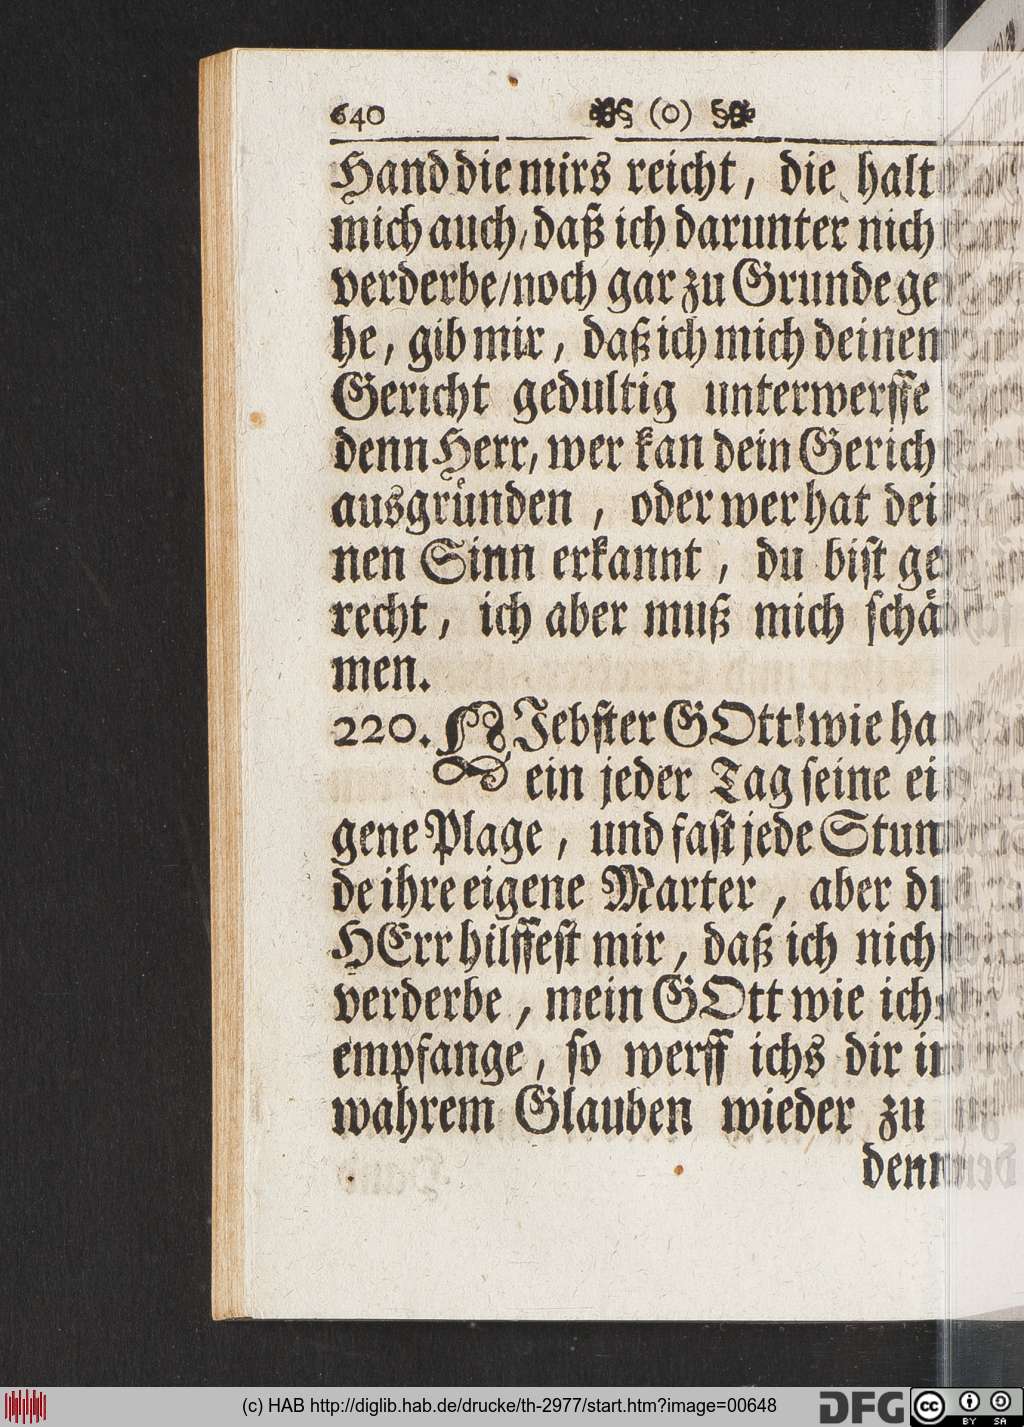 640 (o)
Hand die mirs reicht, die halt
mich auch/ daß ich darunter nich
verderbe/noch gar zu Grunde ge
he, gib mir, daß ich mich deinen
Gericht gedultig unterwerffe
denn Herr, wer kan dein Gerich
ausgründen, oder wer hat dei
nen Sinn erkannt, du bist ge
recht, ich aber muß mich schä
men.
220. LJebster GOtt! wie ha
ein jeder Tag seine ei
gene Plage, und fast jede Stun
de ihre eigene Marter, aber du
HErr hilffest mir, daß ich nich
verderbe, mein GOtt wie ichs
empfange, so werff ichs dir in
wahrem Glauben wieder zu
denn
(c) HAB http://diglib.hab.de/drucke/th-2977/start.htm?image=00648
DFG
cc
BY SA